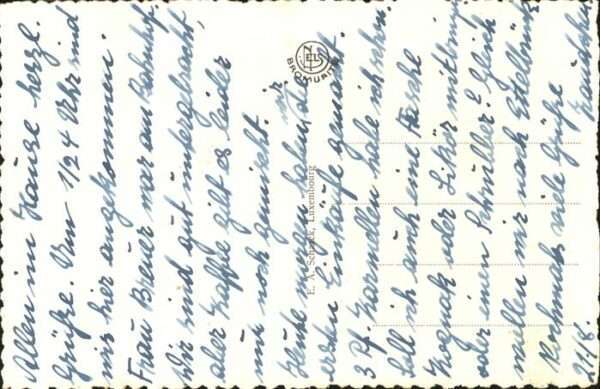 Allen im Hause herzl.
Grüße. Um 1/24 Uhr sind
wir hier angekommen.
Frau Breuer war am Bahnhof
Wir sind gut untergebracht,
aber Kaffee gibt es leider
nur noch gemischt.
Heute morgen haben wir die
ersten Einkäufe gemacht.
3 Pf. Karmellen habe ich schon.
Soll ich auch eine Flasche
Kognak oder Likör mitbringen
oder einen Schnüller? Gleich
wollen wir nach Ettelbrück
Nochmals viele Grüße
Käthchen
21/6.
EL
BROMURITE
E. A. Schaack, Luxembourg